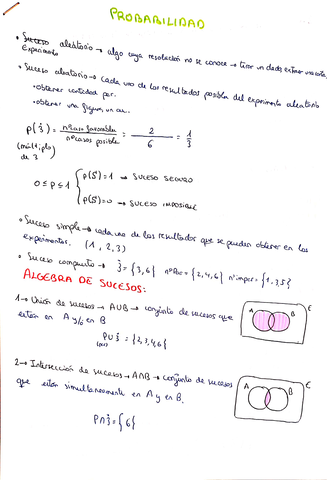 PROBABILIDAD
• Suceso aleatorio → algo cuya resolución no se conoce → tirar un dado, extraer una carta.
Experimento
• Suceso aleatorio → cada uno de los resultados posibles del experimento aleatorio
• obtener cantidad par.
• obtener una figura, un
P(3̇) = nº caso favorable / nº casos posible = 2/6 = 1/3
(múltiplo
de 3)
0 ≤ p ≤ 1 { P(S) = 1 → SUCESO SEGURO
P(S) = 0 → SUCESO IMPOSIBLE
• Suceso simple → cada uno de los resultados que se pueden obtener en los
experimentos. (1, 2, 3)
• Suceso compuesto → 3̇ = {3,6} nº Par = {2,4,6} nº impar = {1,3,5}
ALGEBRA DE SUCESOS:
1 → Unión de sucesos → AUB → conjunto de sucesos que
están en A y/o en B
P U 3̇ = {2,3,4,6}
A B E
2 → Intersección de sucesos → A∩B → conjunto de sucesos
que están simultáneamente en A y en B.
P∩3̇ = {6}
A B E